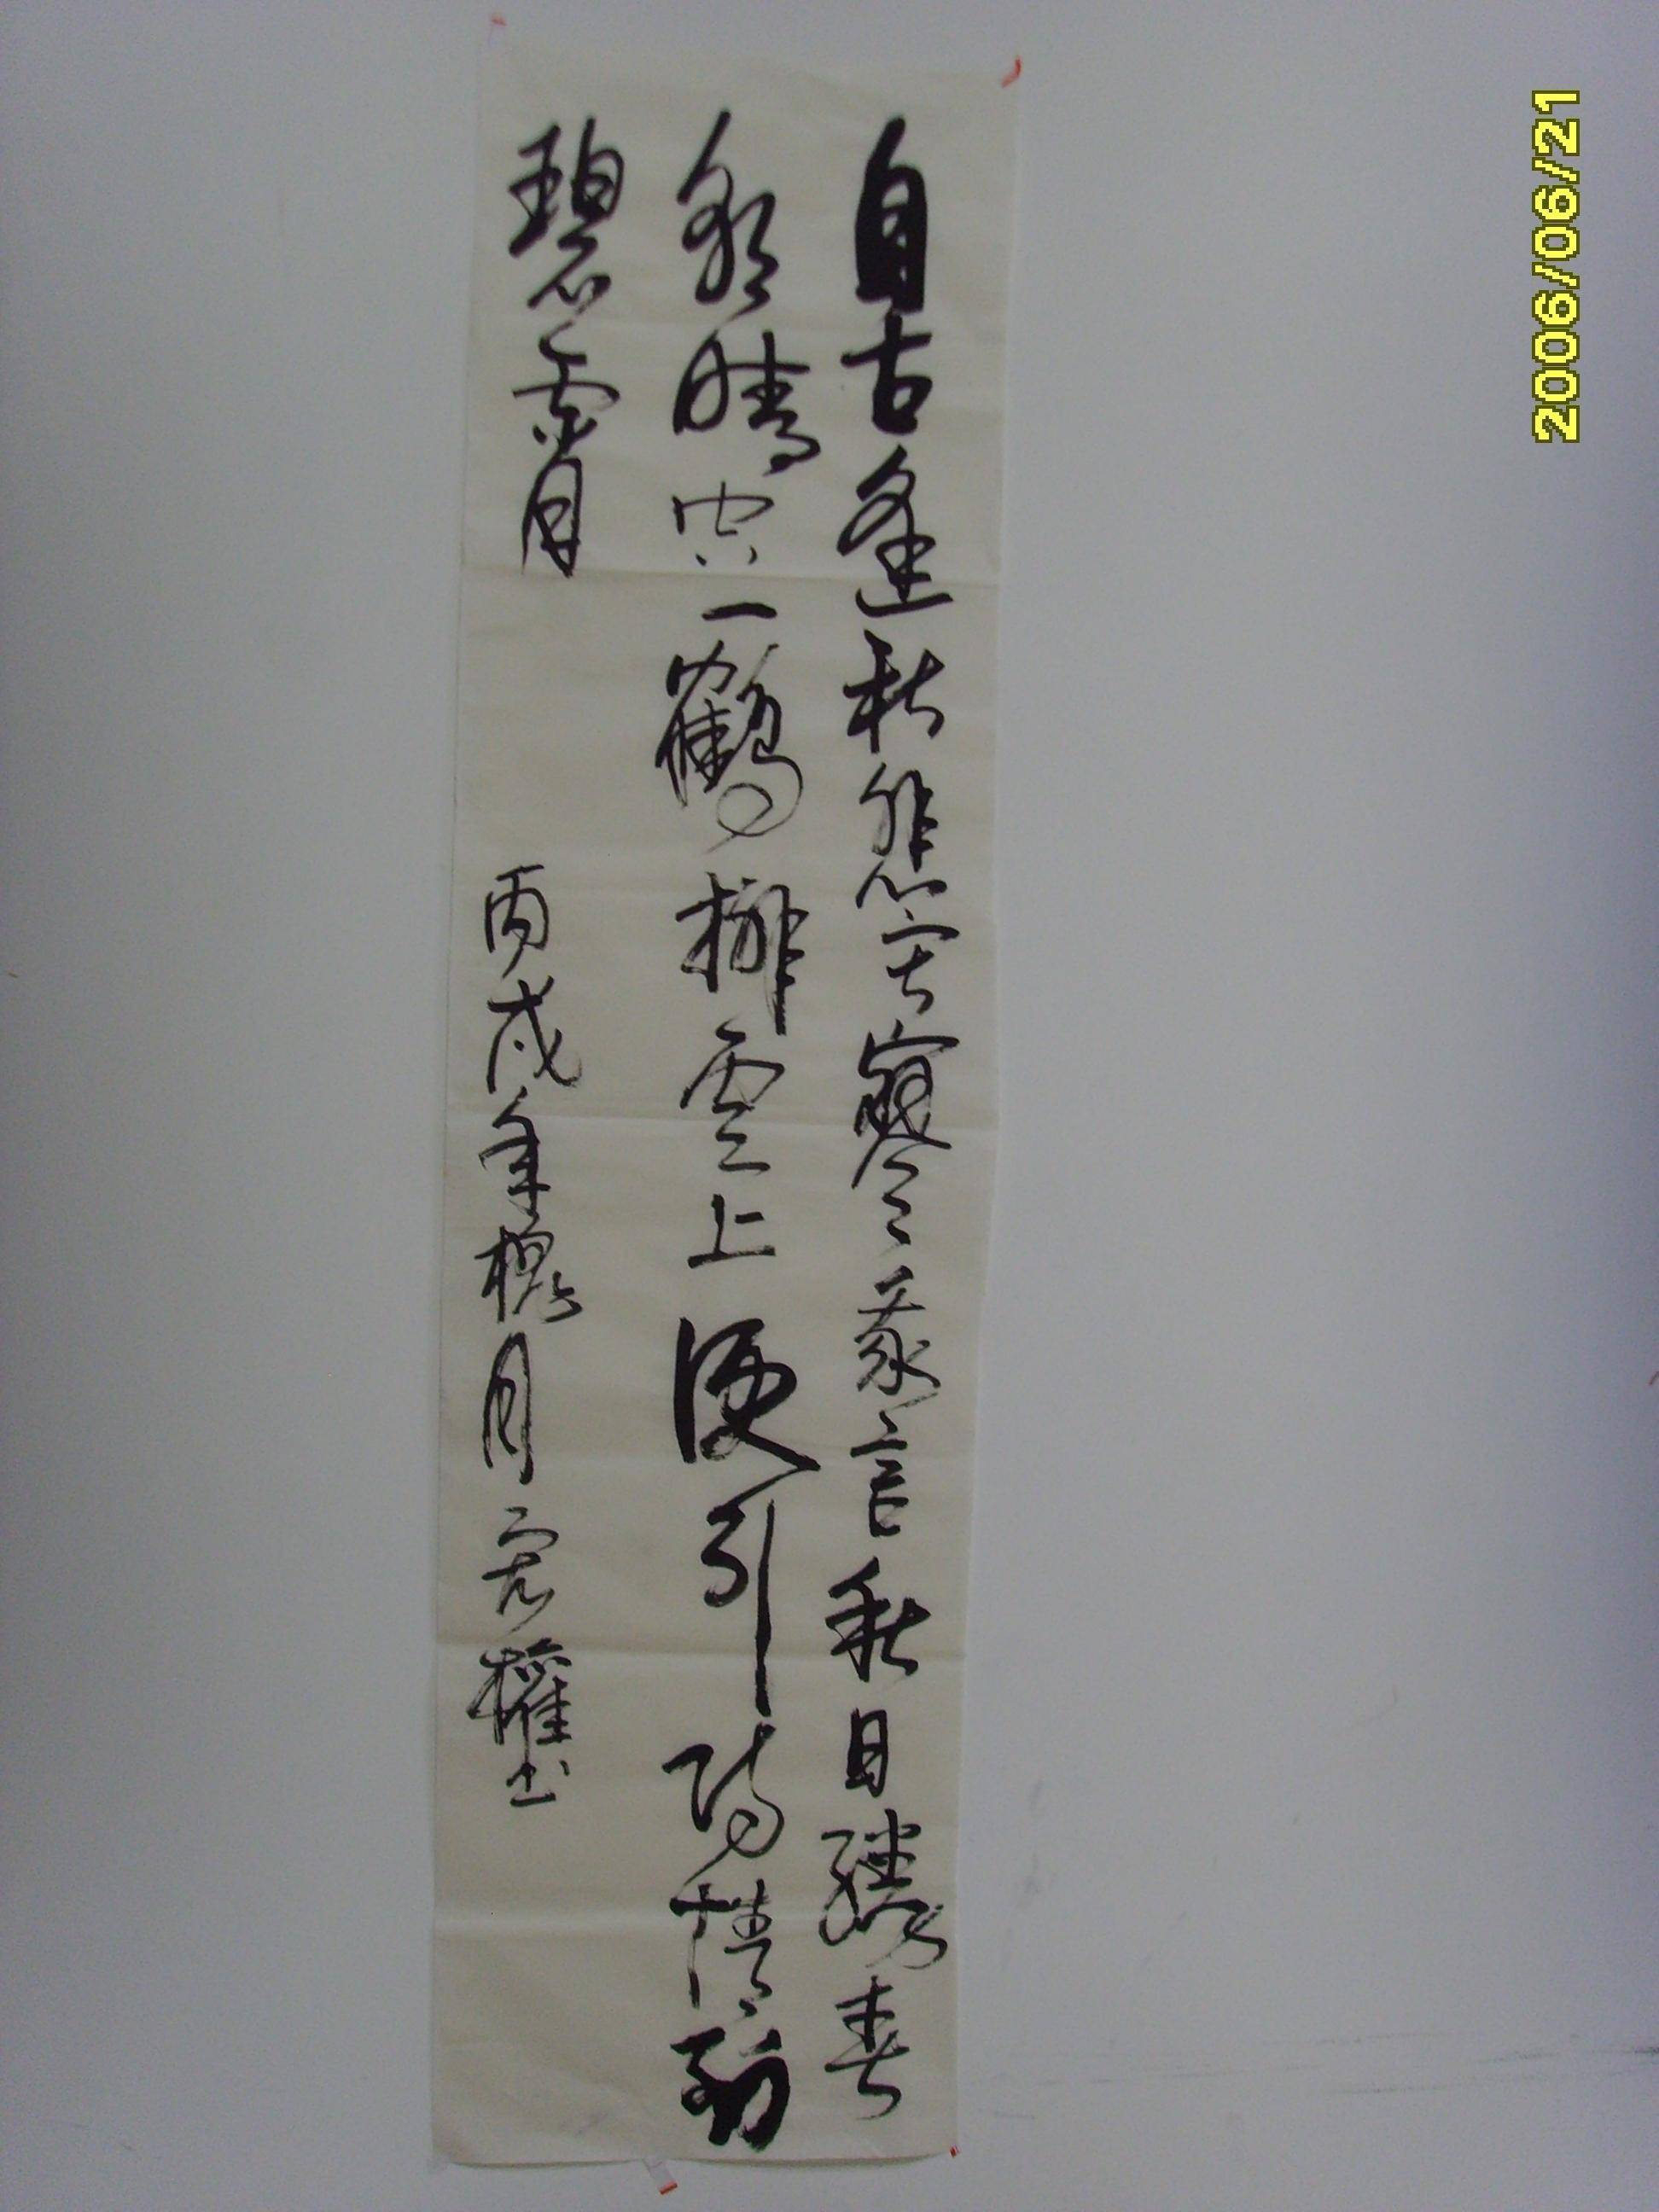 自古逢秋悲寂寥我言秋日勝春
朝晴空一鶴排雲上便引詩情到
碧霄 丙戌年槐月權書
2006/06/21